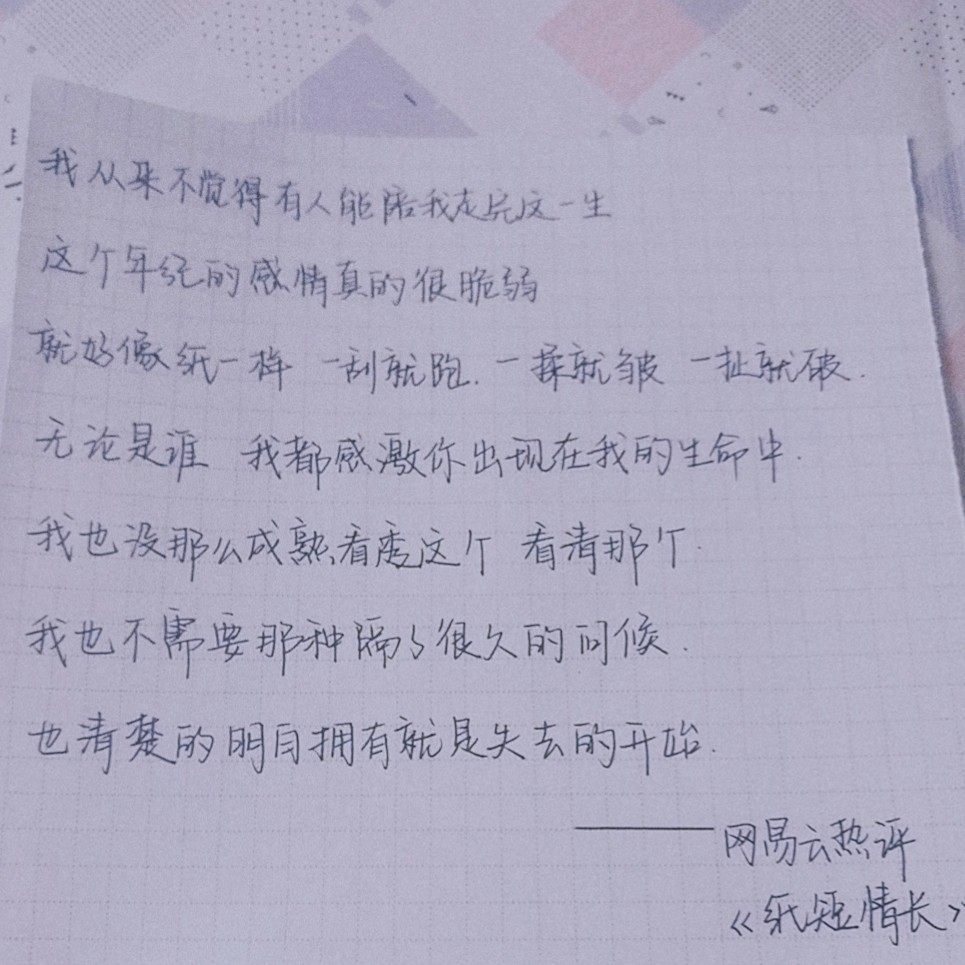 我从来不觉得有人能陪我走完这一生
这个年纪的感情真的很脆弱
就好像纸一样 一刮就跑.一揉就皱 一扯就破.
无论是谁 我都感激你出现在我的生命中.
我也没那么成熟看透这个 看清那个.
我也不需要那种隔了很久的问候.
也清楚的明白拥有就是失去的开始.
——网易云热评
《纸短情长》